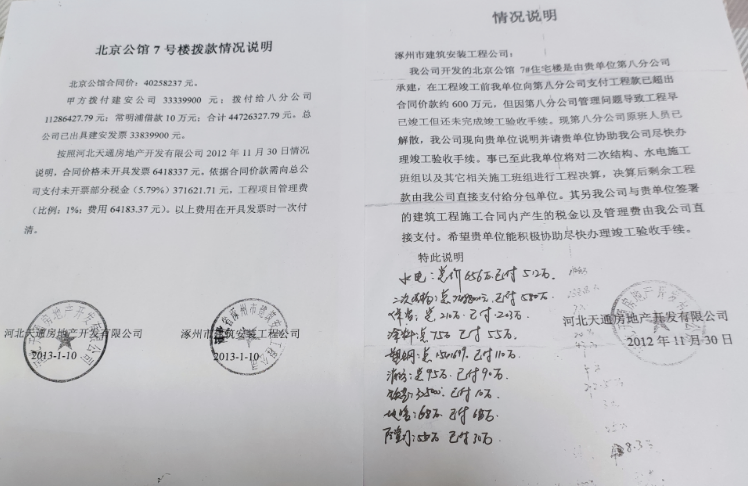 北京公馆7号楼拨款情况说明
北京公馆合同价：40258237元。
甲方拨付建安公司 33339900 元；拨付给八分公司
11286427.79元；常明浦借款10万元；合计44726327.79元。总
公司已出具建安发票 33839900元。
按照河北天通房地产开发有限公司2012年11月30日情况
说明，合同价格未开具发票 6418337元。依据合同价款需向总公
司支付未开票部分税金（5.79%）371621.71元，工程项目管理费
（比例：1%；费用64183.37元）。以上费用在开具发票时一次付
清。
河北天通房地产开发有限公司
2013-1-10
涿州市建筑安装工程公司
2013-1-10
情况说明
涿州市建筑安装工程公司：
我公司开发的北京公馆 7#住宅楼是由贵单位第八分公司
承建，在工程竣工前我单位向第八分公司支付工程款已超出
合同价款约600万元，但因第八分公司管理问题导致工程早
已竣工但还未完成竣工验收手续。现第八分公司原班人员已
解散，我公司现向贵单位说明并请贵单位协助我公司尽快办
理竣工验收手续。事已至此我单位将对二次结构、水电施工
班组以及其它相关施工班组进行工程决算，决算后剩余工程
款由我公司直接支付给分包单位。其另我公司与贵单位签署
的建筑工程施工合同内产生的税金以及管理费由我公司直
接支付。希望贵单位能积极协助尽快办理竣工验收手续。
特此说明
水电：总价656万已付512万
已付580万
总210万 已付203万
涂料：总75万 已付55万
已付110万
总95万 已付90万
已付10万
68万 已付68万
55万 已付30万
河北天通房地产开发有限公司
2012年11月30日